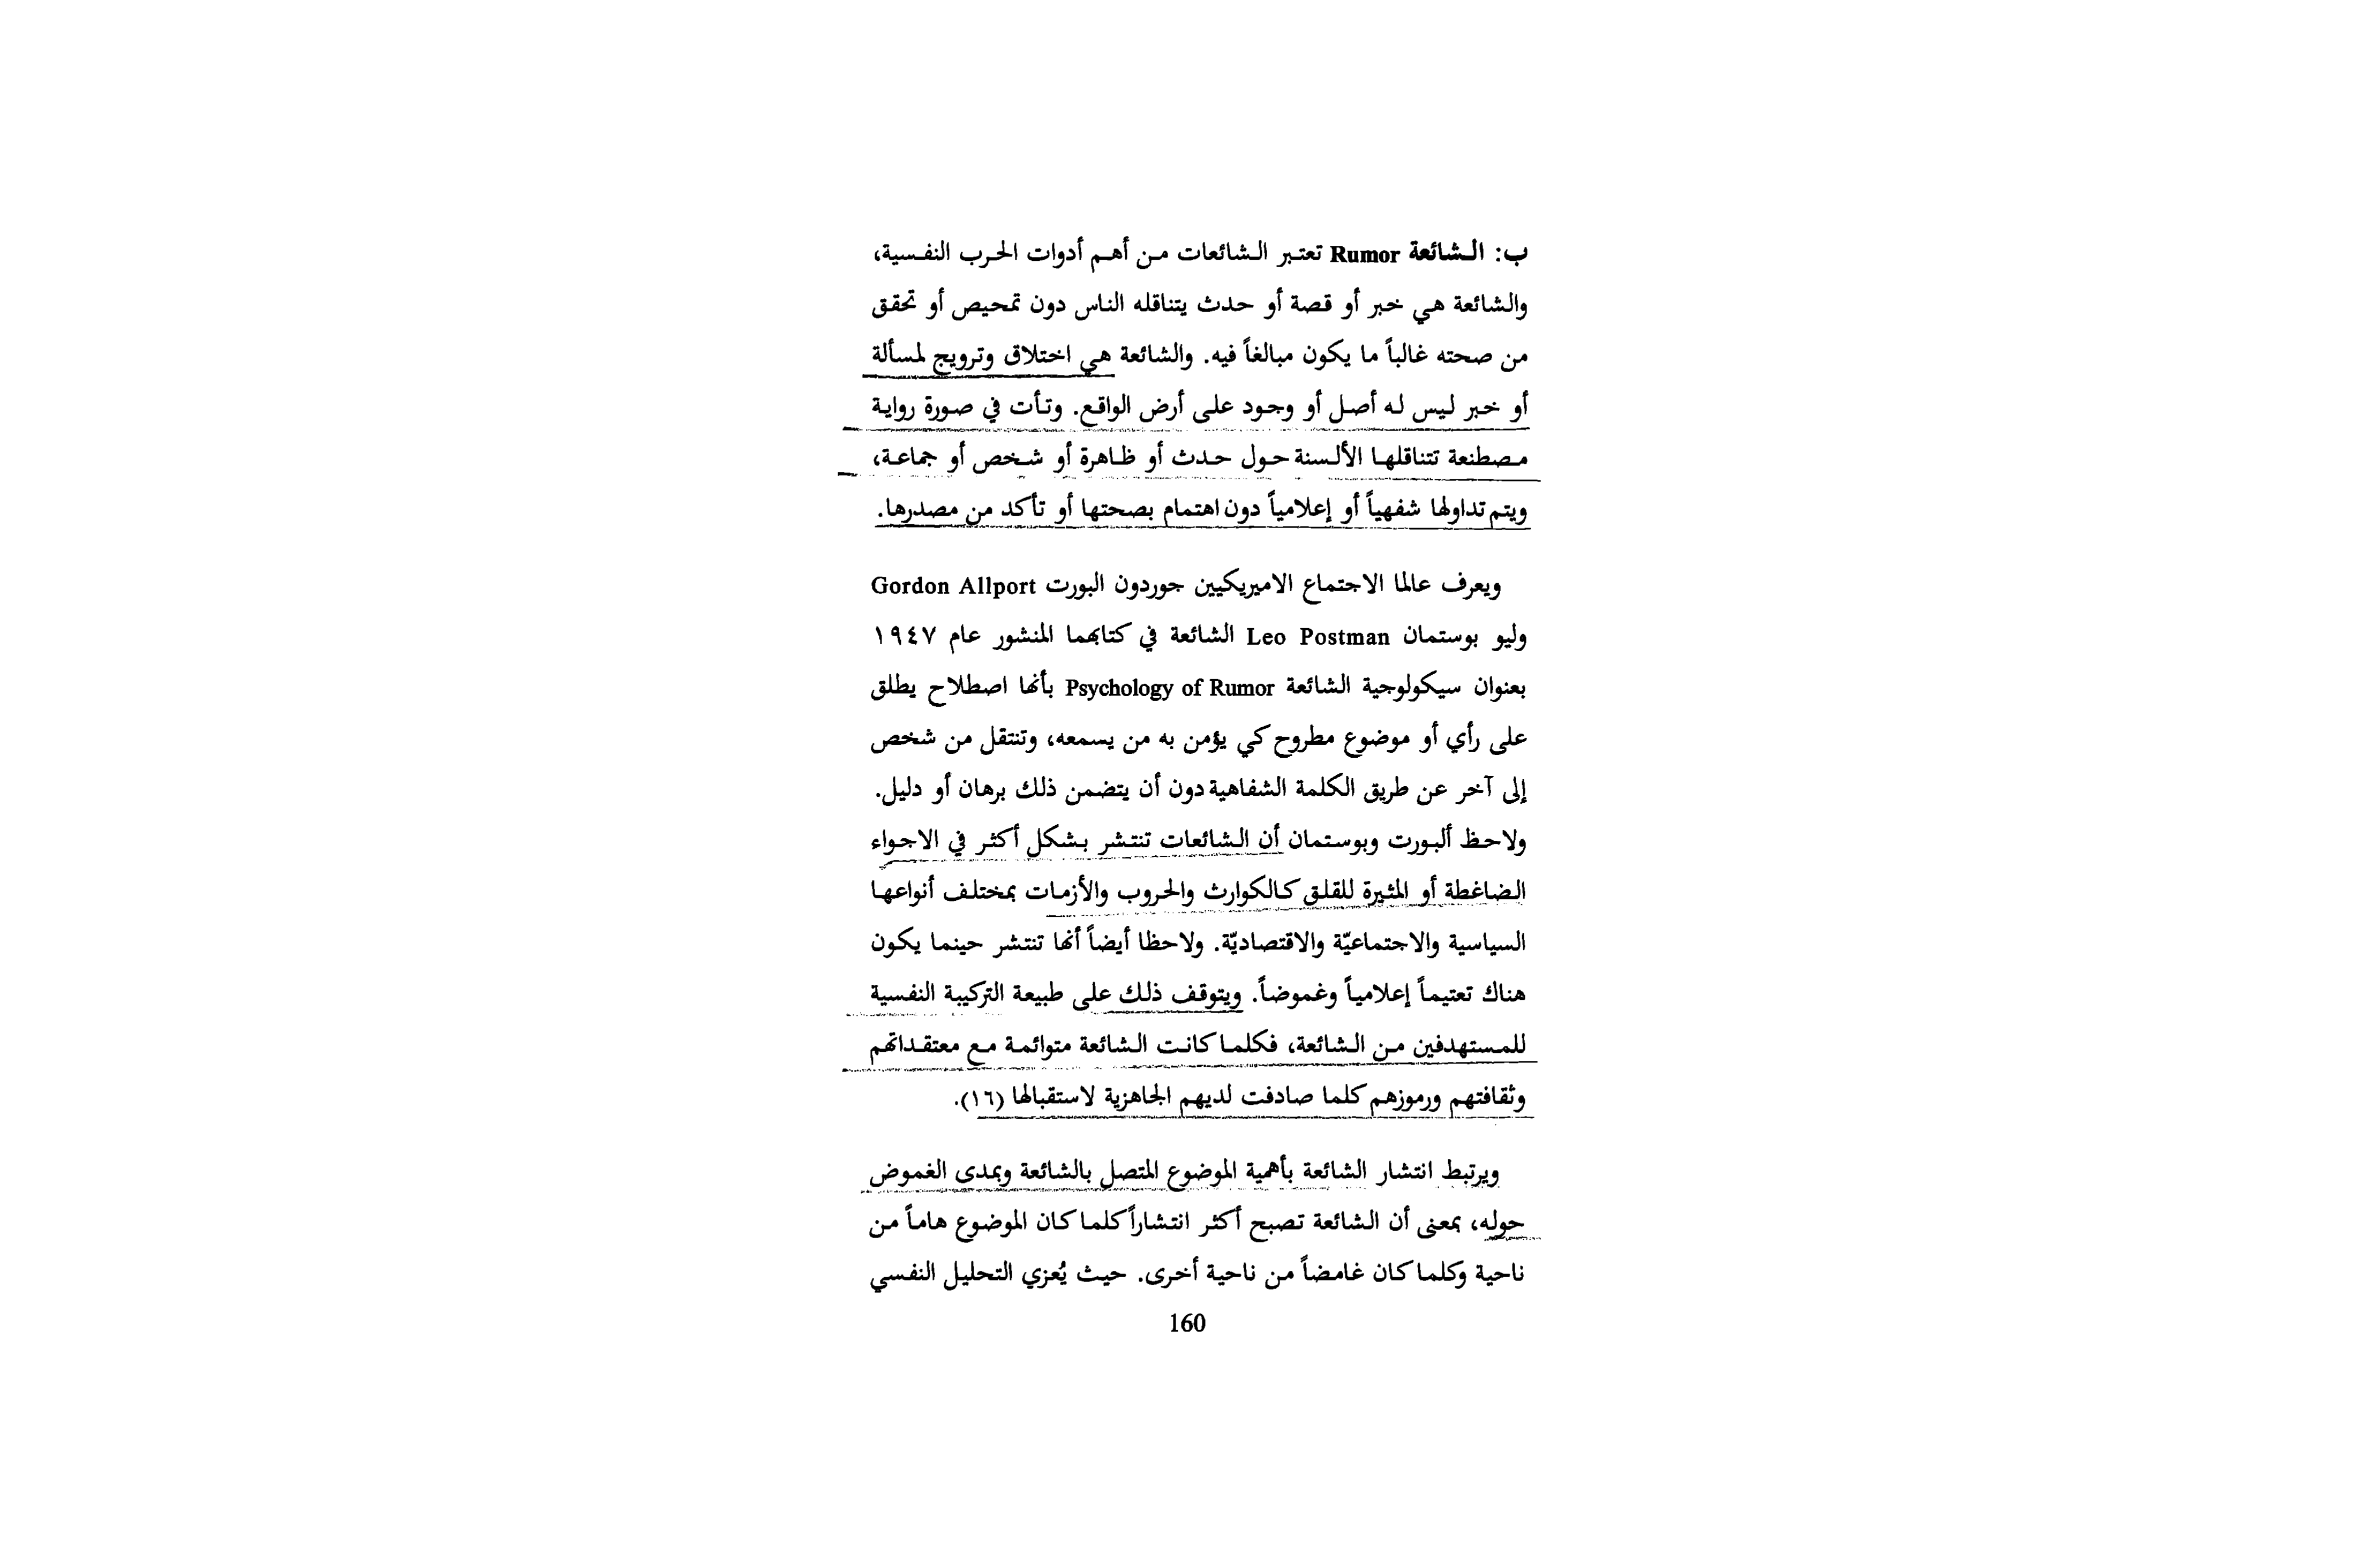 ب: الشائعة Rumor تعتبر الشائعات من أهم أدوات الحرب النفسية،
والشائعة هي خبر أو قصة أو حدث يتناقله الناس دون تمحيص أو تحقق
من صحته غالباً ما يكون مبالغاً فيه. والشائعة هي اختلاق وترويج لمسألة
أو خبر ليس له أصل أو وجود على أرض الواقع. وتأت في صورة رواية
مصطنعة تتناقلها الألسنة حول حدث أو ظاهرة أو شخص أو جماعة،
ويتم تداولها شفهياً أو إعلامياً دون اهتمام بصحتها أو تأكد من مصدرها.
ويعرف عالما الاجتماع الاميريكيين جوردون البورت Gordon Allport
وليو بوستمان Leo Postman الشائعة في كتابهما المنشور عام ١٩٤٧
بعنوان سيكولوجية الشائعة Psychology of Rumor بأنها اصطلاح يطلق
على رأي أو موضوع مطروح كي يؤمن به من يسمعه، وتنتقل من شخص
إلى آخر عن طريق الكلمة الشفاهية دون أن يتضمن ذلك برهان أو دليل.
ولاحظ ألبورت وبوستمان أن الشائعات تنتشر بشكل أكثر في الاجواء
الضاغطة أو المثيرة للقلق كالكوارث والحروب والأزمات بمختلف أنواعها
السياسية والاجتماعيّة والاقتصاديّة. ولاحظا أيضاً أنها تنتشر حينما يكون
هناك تعتيماً إعلامياً وغموضاً. ويتوقف ذلك على طبيعة التركيبة النفسية
للمستهدفين من الشائعة، فكلما كانت الشائعة متوائمة مع معتقداتهم
وثقافتهم ورموزهم كلما صادفت لديهم الجاهزية لاستقبالها (١٦).
ويرتبط انتشار الشائعة بأهمية الموضوع المتصل بالشائعة وبمدى الغموض
حوله، بمعنى أن الشائعة تصبح أكثر انتشاراً كلما كان الموضوع هاماً من
ناحية وكلما كان غامضاً من ناحية أخرى. حيث يُعزي التحليل النفسي
160